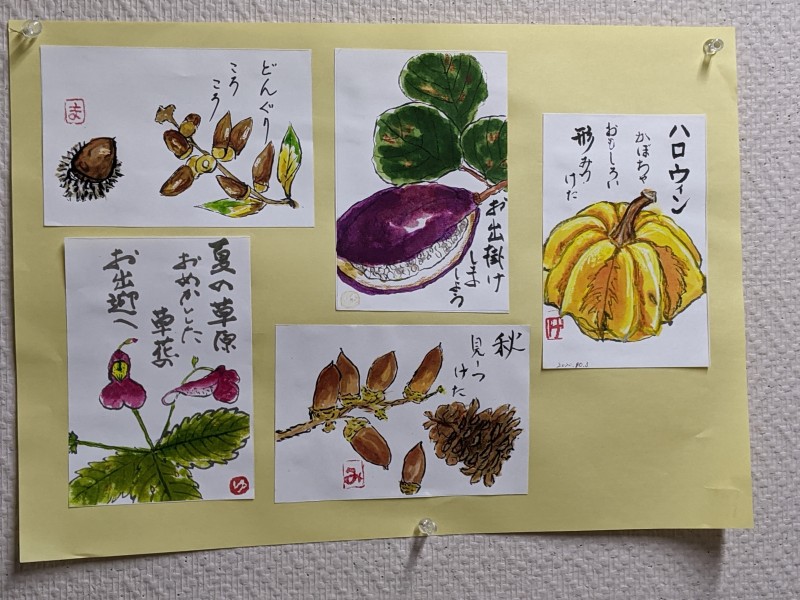 どんぐり
ころ
ころ
お出掛け
しま
しょう
ハロウィン
かぼちゃ
おもしろい
形みつ
けた
夏の草原
おめかしした
草花の
お出迎へ
ゆ
秋
見ーつ
けた